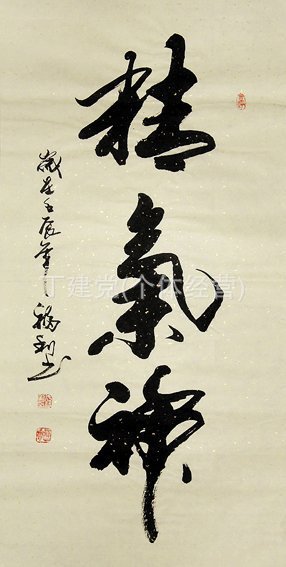 精氣神
歲在壬辰年
福利书
丁建党(个体经营)